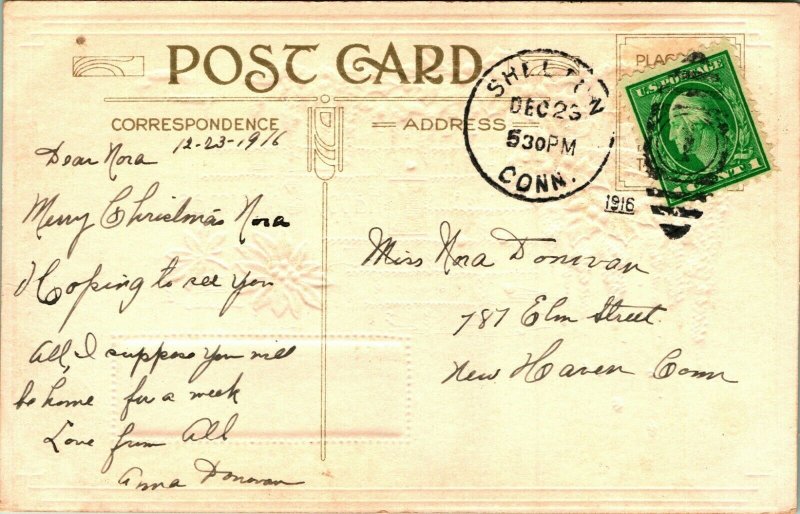 POST CARD
CORRESPONDENCE
ADDRESS
12-23-1916
Dear Nora
Merry Christmas Nora
Hoping to see you
All, I suppose you will
be home for a week
Love from All
Anna Donovan
SHELTON
DEC 23
530PM
CONN.
1916
PLA
U.S. POSTAGE
1 CENT 1
Miss Nora Donovan
787 Elm Street
New Haven Conn